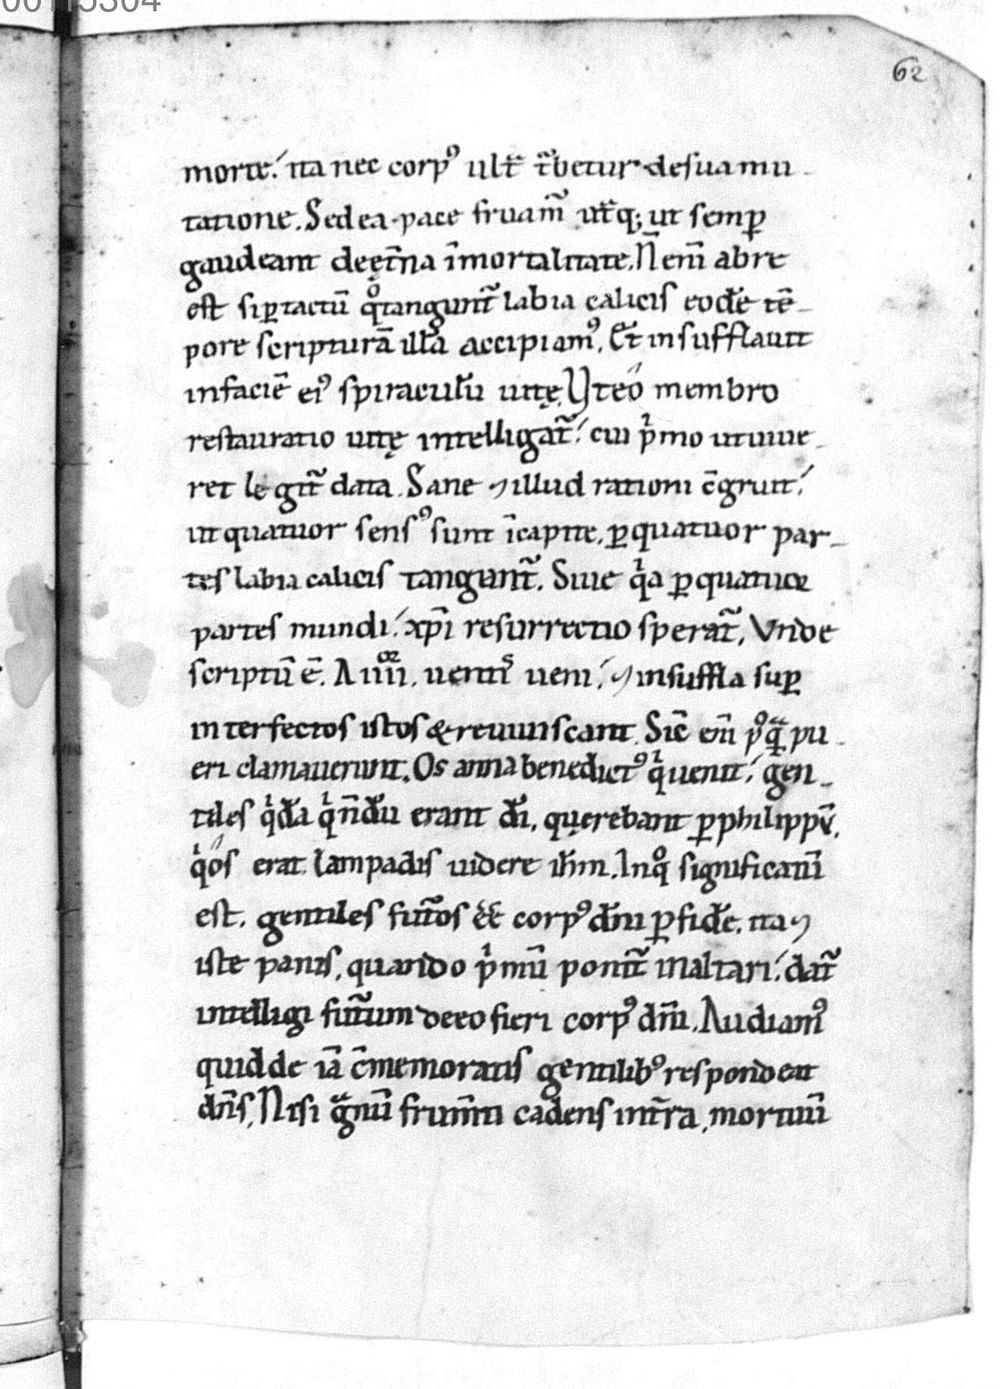 00115304
62
morte. ita nec corpꝰ ult̄ t̄betur desua mu
tatione. Sed ea pace fruam̃ ut̃q; ut semꝑ
gaudeant deęt̃na īmortalitate. N̄ eni᷃ abre
est siꝑ tactū qͦ tangunt̃ labia calicis eodē tē
pore scripturā illā accipiamꝰ. Et insufflauit
infaciē eiꝰ spiraculū uitę. Vt eo membro
restauratio uitę intelligat̃. cui pͥmo utuiue
ret legit̃ data. Sane ⁊ illud rationi c̄gruit.
ut quatuor sensꝰ sunt īcapite, ꝑ quatuor par
tes labia calicis tangunt̃. Siue qͥa ꝑ quatuor
partes mundi. xp̄i resurrectio sperat̃. Vnde
scriptū ē. A iiiiᵒʳ. uentis ueni. ⁊ insuffla suꝑ
interfectos istos & reuiuiscant. Sic̄ eni᷃ pꝰqᷓ pu
eri clamauerunt. Os anna benedictꝰ qͥ uenit. gen
tiles qͥdā qͥ n̄dū erant d̄i, querebant ꝑ philippū,
qͥ os erat lampadis uidere ih̄m. In qͦ significatū
est. gentiles fut̃os ee͞ corpꝰ dn̄i ꝑ fidē. ita ⁊
iste panis, quando pͥmū ponit̃ inaltari. dat̃
intelligi fut̃um deeo fieri corpꝰ dn̄i. Audiamꝰ
quid de iā c̄memoratis gentilibꝰ respondeat
dn̄s. Nisi gᷓnū frum̄ti cadens int̃ra, mortuū